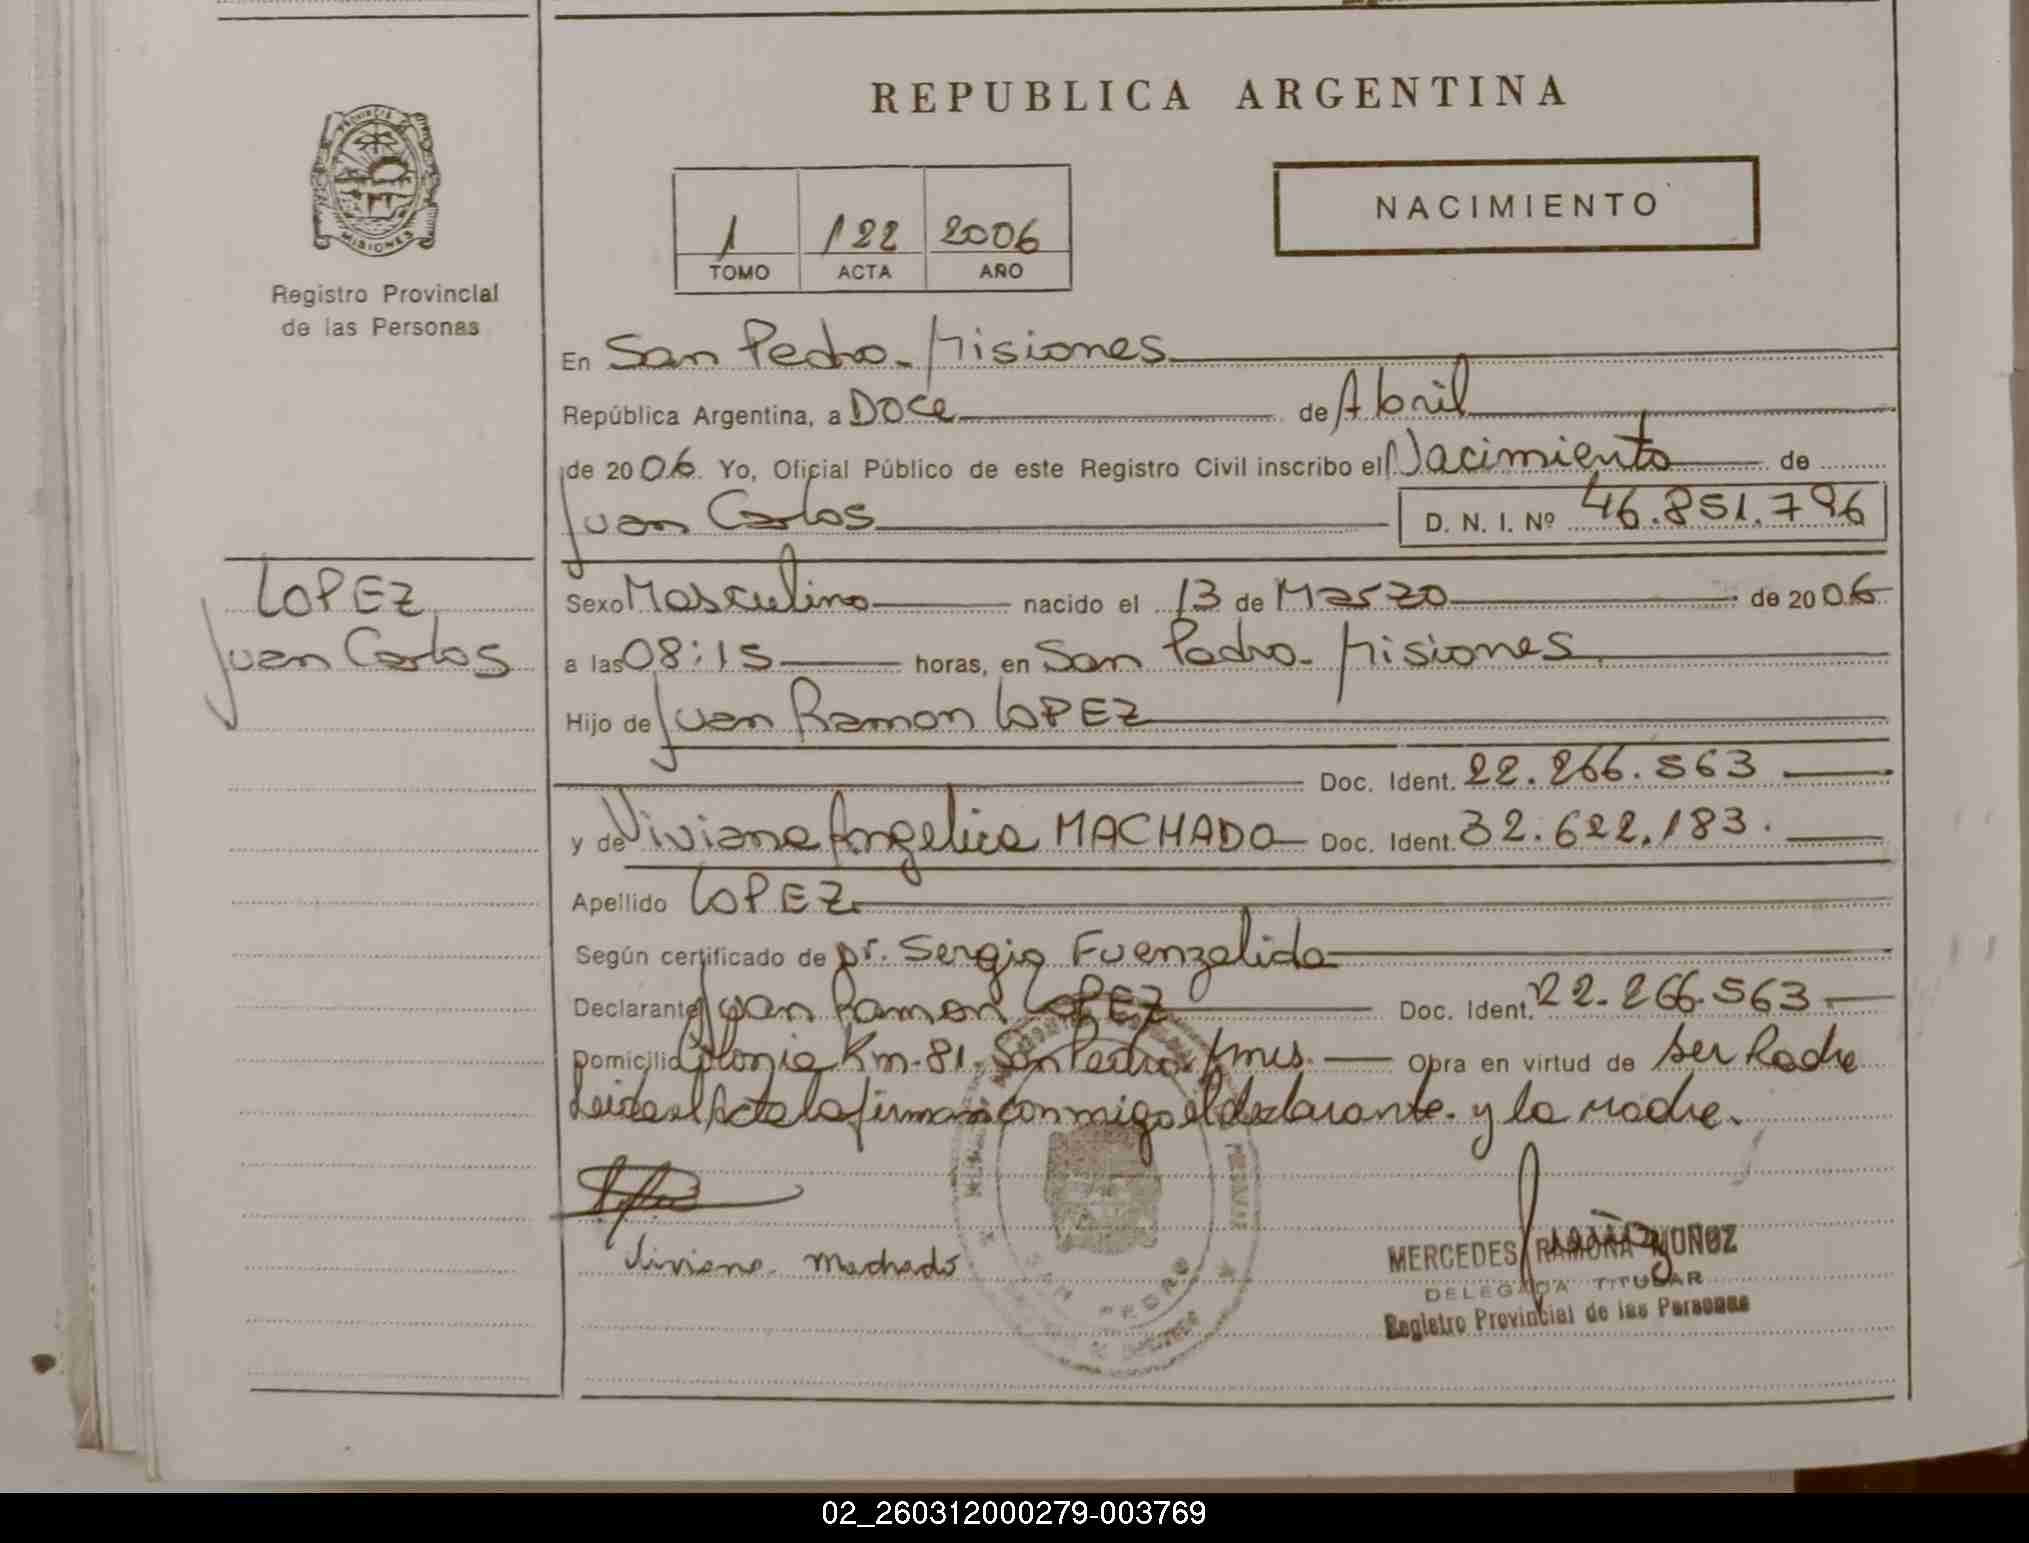 REPUBLICA ARGENTINA
PROVINCIA DE MISIONES
NACIMIENTO
1 122 2006
TOMO ACTA AÑO
Registro Provincial
de las Personas
En San Pedro - Misiones
República Argentina, a Doce de Abril
de 2006. Yo, Oficial Público de este Registro Civil inscribo el Nacimiento de
Juan Carlos D. N. I. Nº 46.851.796
LOPEZ
Juan Carlos
Sexo Masculino nacido el 13 de Marzo de 2006
a las 08:15 horas, en San Pedro - Misiones
Hijo de Juan Ramon LOPEZ
Doc. Ident. 22.266.563
y de Viviana Angelica MACHADO Doc. Ident. 32.622.183.
Apellido LOPEZ
Según certificado de Dr. Sergio Fuenzalida
Declarante Juan Ramon LOPEZ Doc. Ident. 22.266.563
Domicilio Colonia Km-81. San Pedro - Mnes. Obra en virtud de ser Padre
Leida el Acta la firman conmigo el declarante y la madre.
Viviana Machado
SAN PEDRO
MERCEDES RAMONA MUÑOZ
DELEGADA TITULAR
Registro Provincial de las Personas
02_260312000279-003769